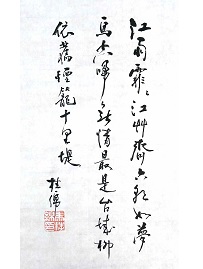 江雨霏〻江艸齊六朝如夢
鳥空啼無情最是台城柳
依舊煙籠十里堤